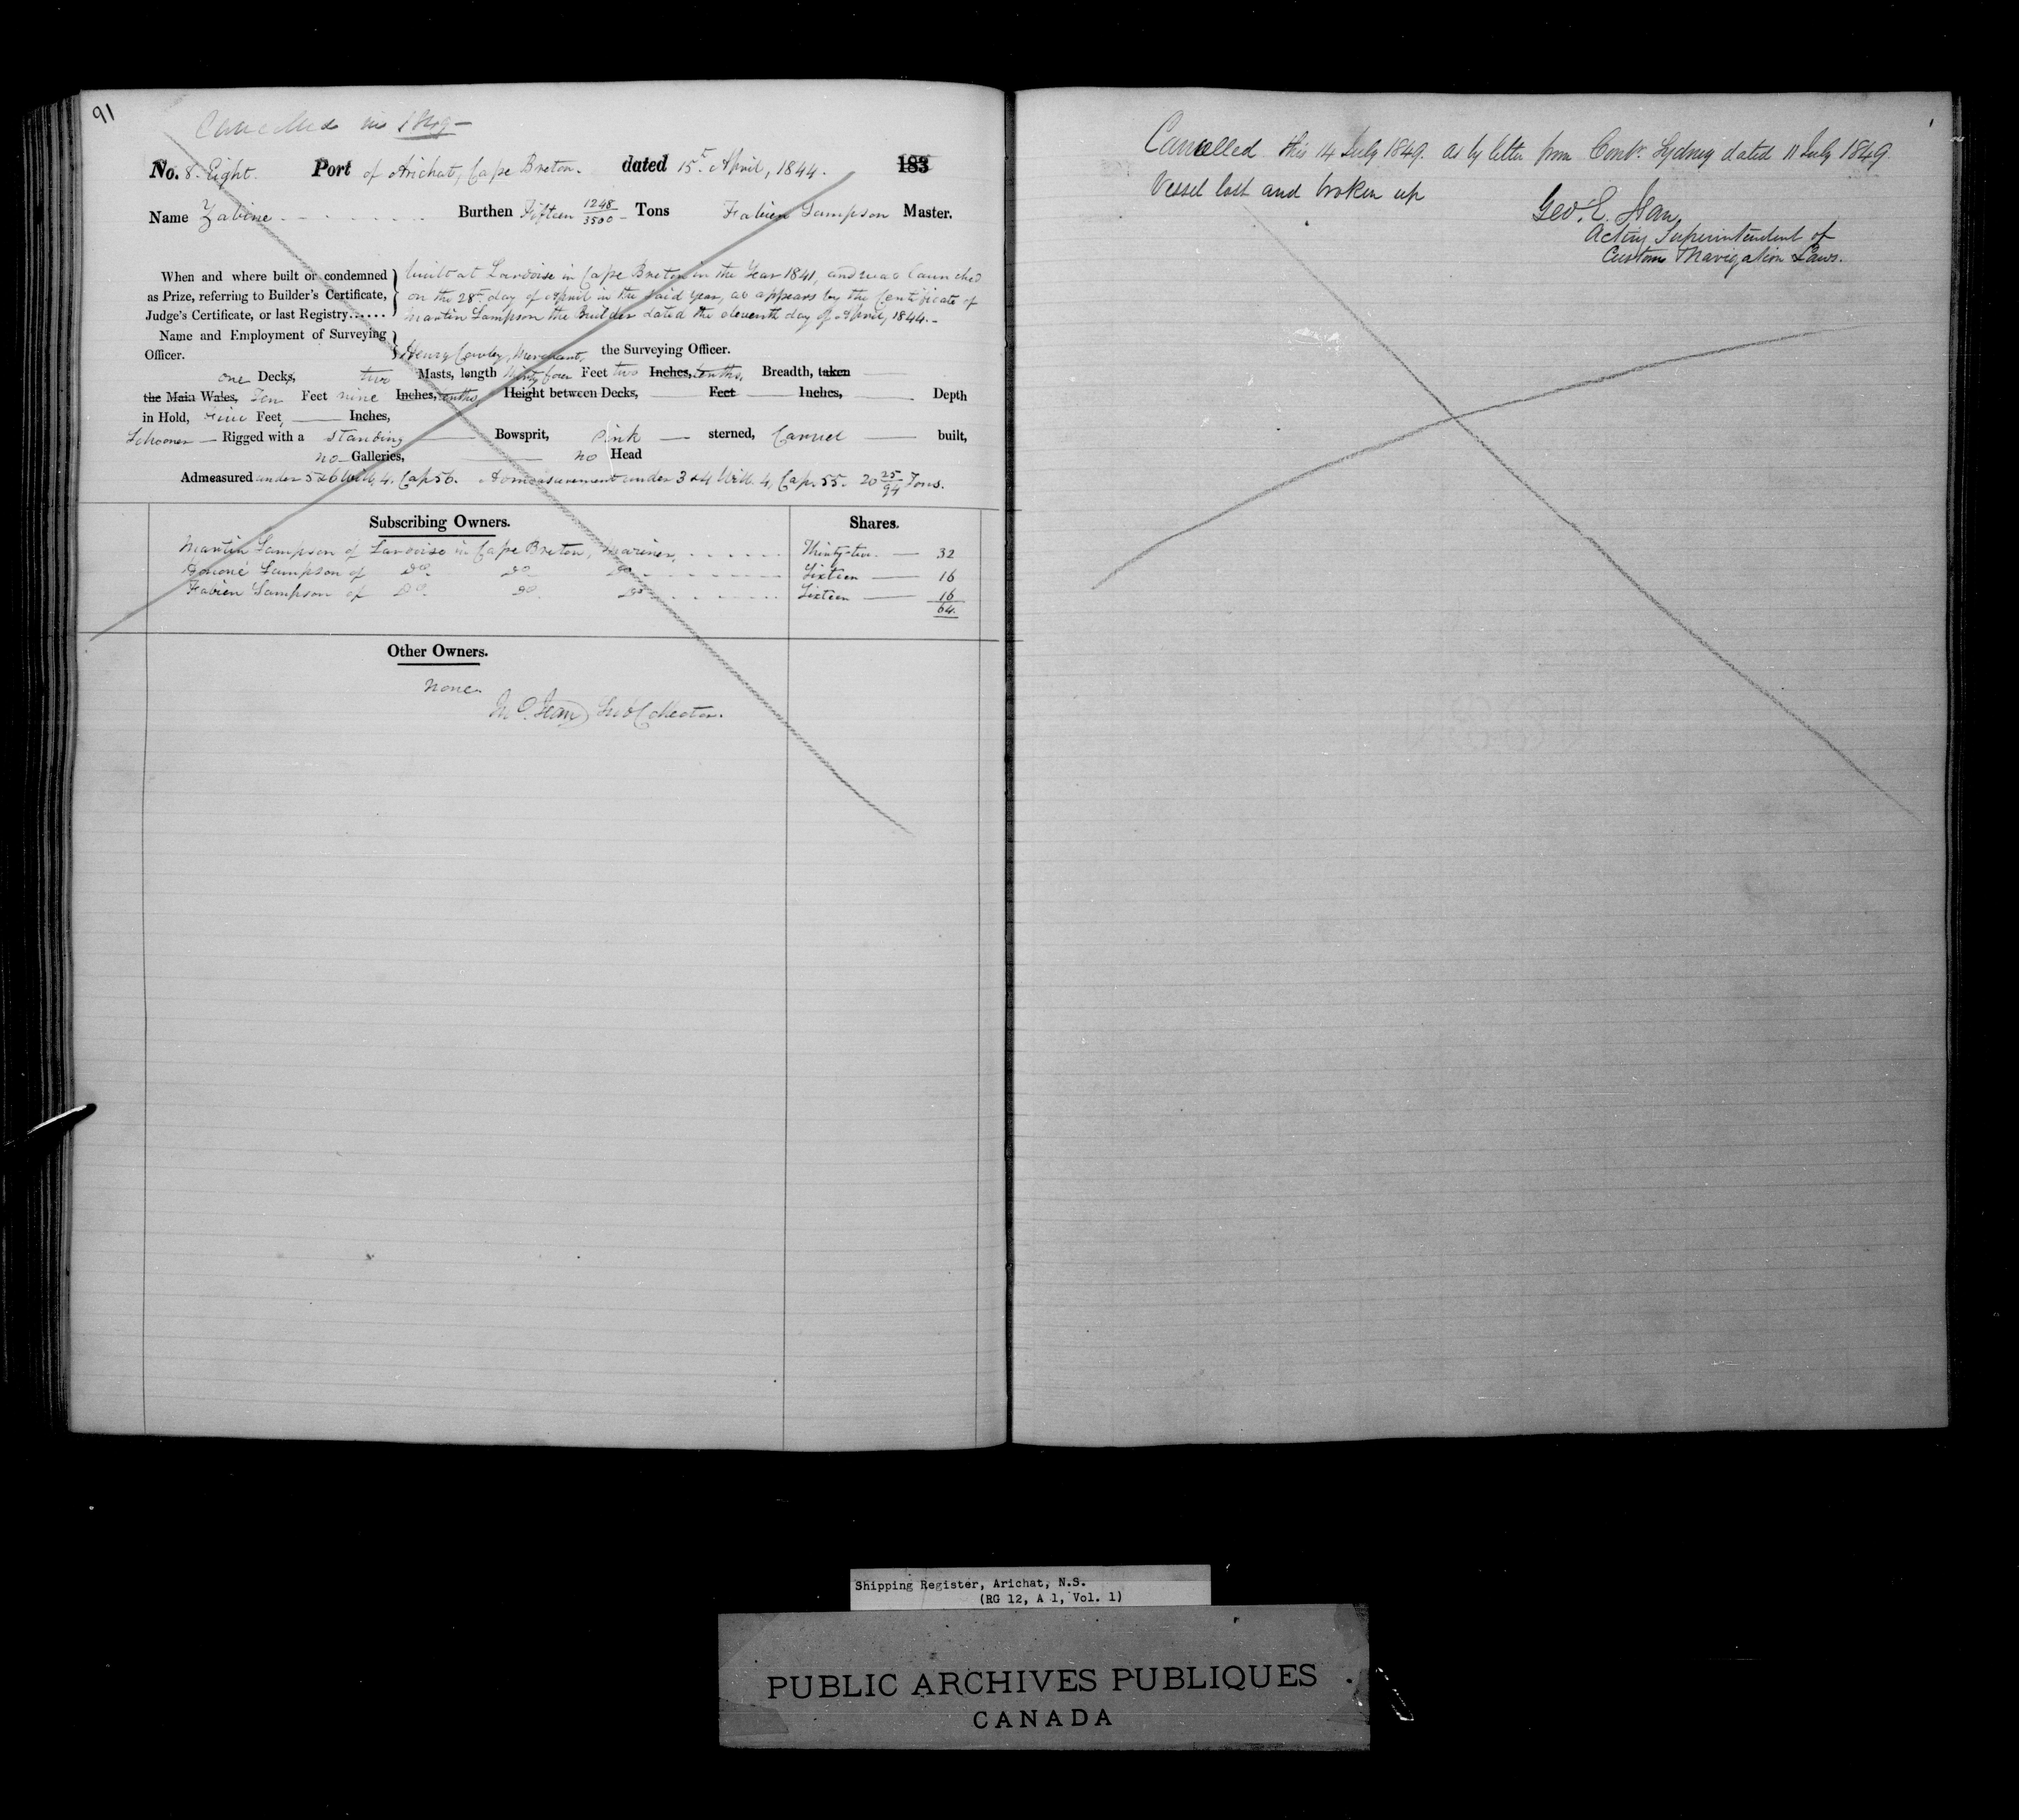 91
Cancelled
No. 8. Eight. Port of Arichat, Cape Breton. dated 15th April, 1844. 183
Name Zabine Burthen Fifteen 1248/3500 Tons Fabien Sampson Master.
When and where built or condemned as Prize, referring to Builder's Certificate, Judge's Certificate, or last Registry......
built at Lardoise in Cape Breton in the Year 1841, and was launched
on the 28th day of April in the said year, as appears by the Certificate of
Martin Sampson the Builder dated the eleventh day of April, 1844.
Name and Employment of Surveying Officer.
Henry Cowley, Merchant, the Surveying Officer.
one Decks, two Masts, length thirty four Feet two Inches, tenths, Breadth, taken
the Main Wales, Ten Feet nine Inches, tenths, Height between Decks, Feet Inches, Depth
in Hold, Five Feet, Inches,
Schooner Rigged with a standing Bowsprit, Pink sterned, Carvel built,
no Galleries, no Head
Admeasured under 5 & 6 Will. 4. Cap 56. Admeasurement under 3 & 4 Will. 4, Cap. 55. 20 25/94 Tons.
Subscribing Owners. Shares.
Martin Sampson of Lardoise in Cape Breton, Mariner, Thirty-two 32
Sampson of Do. Do. Do. Sixteen 16
Fabien Sampson of Do. Do. Do. Sixteen 16
64.
Other Owners.
None.
Collector.
Cancelled this 14 July 1849. as by letter from Contr. Sydney dated 11 July 1849
Vessel lost and broken up
Geo. E. Jean
Acting Superintendent of
Customs & Navigation Laws.
Shipping Register, Arichat, N.S.
(RG 12, A 1, Vol. 1)
PUBLIC ARCHIVES PUBLIQUES
CANADA